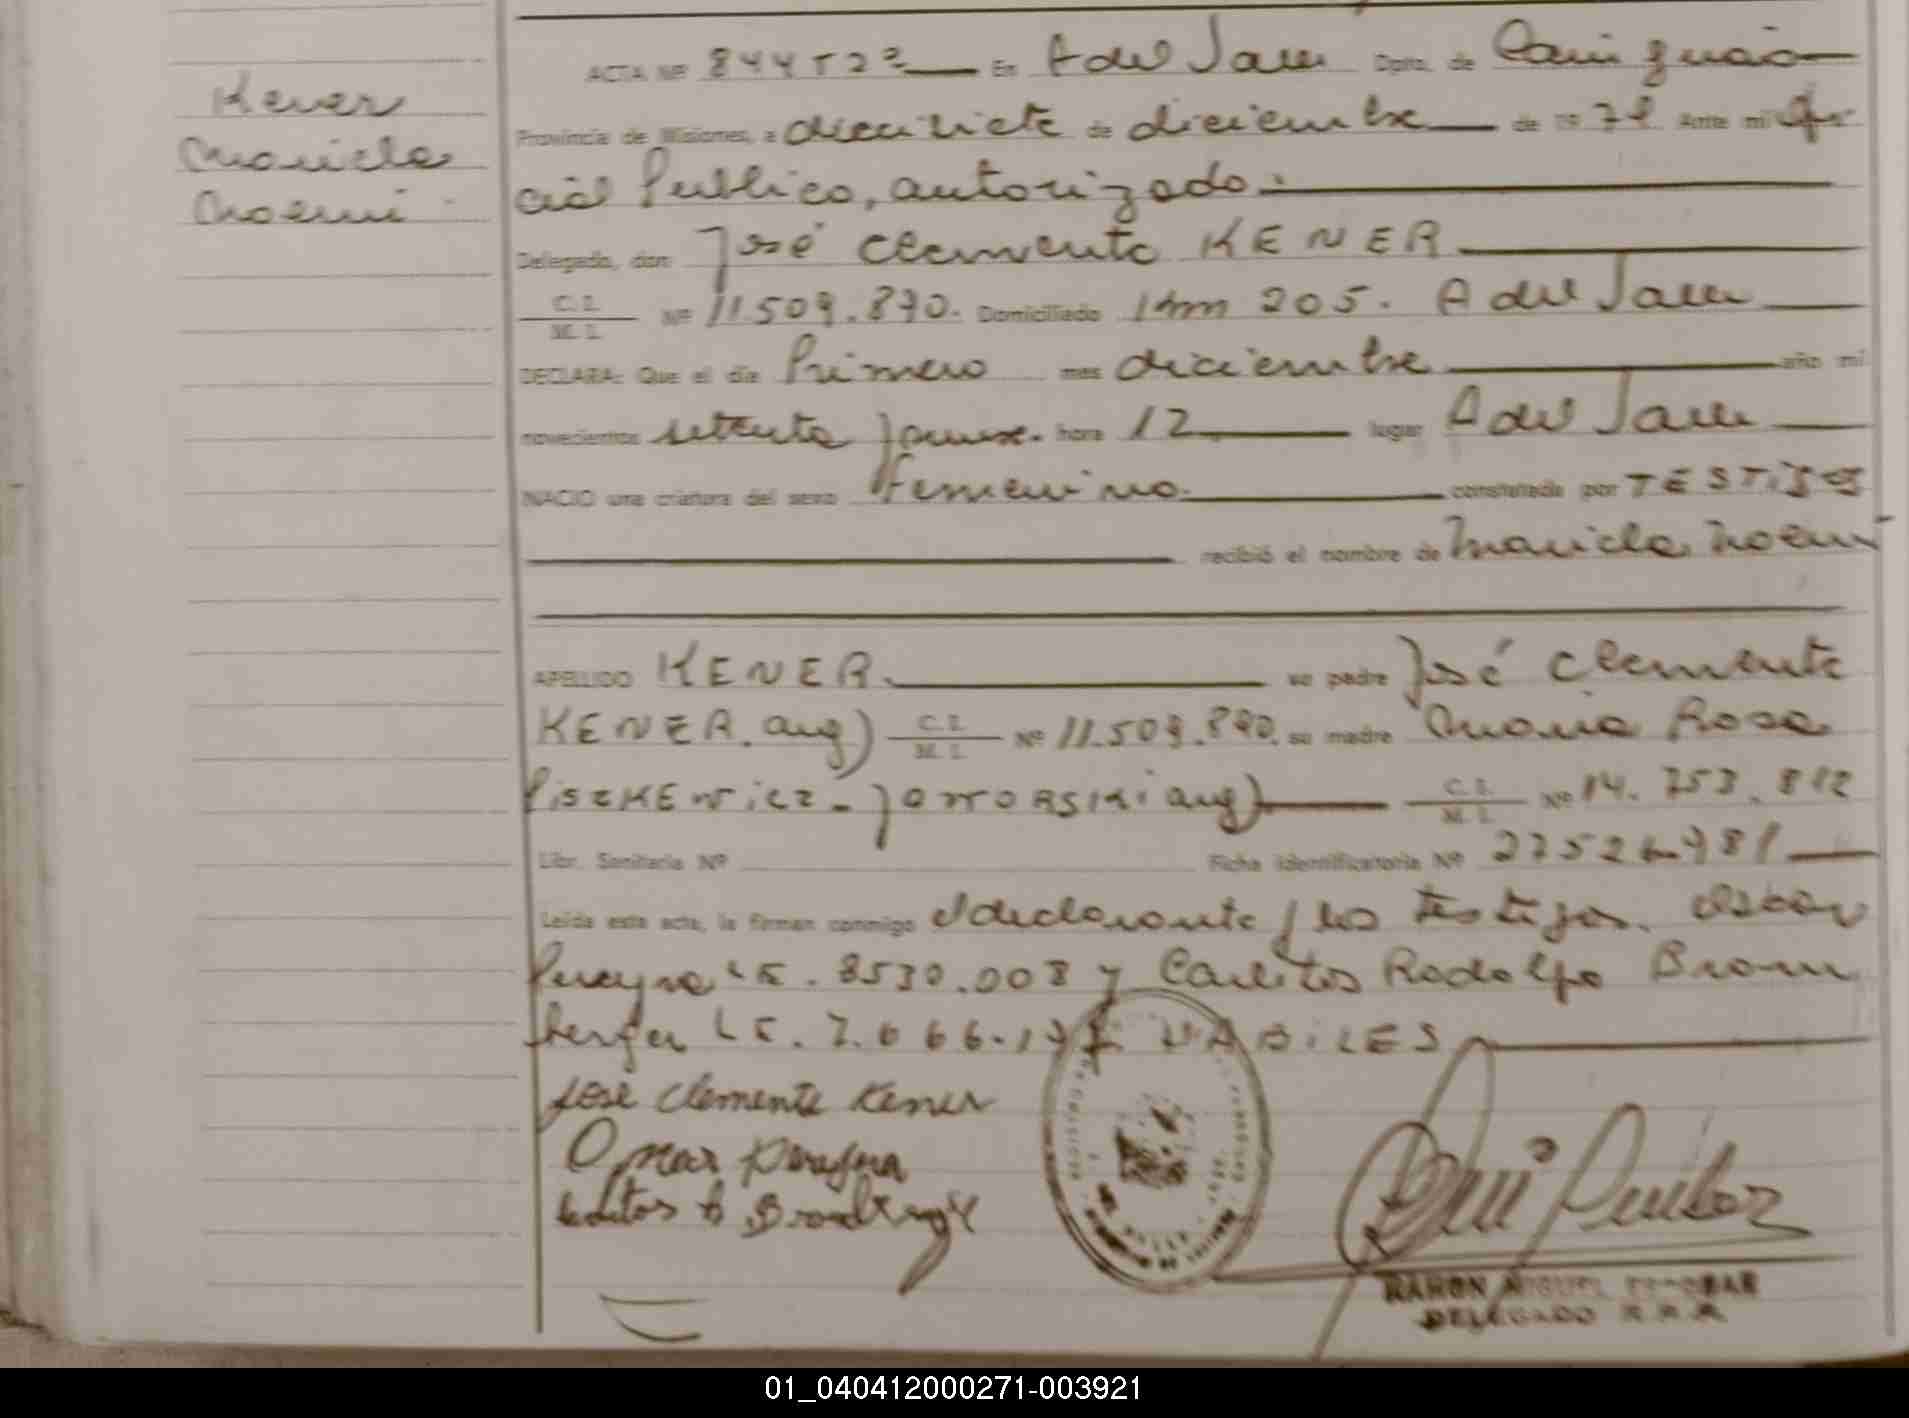 Kener
Maricla
Noemi
ACTA Nº 844 T2º En A del Valle Dpto. de Cainguás
Provincia de Misiones, a diecisiete de diciembre de 1979 Ante mi Ofi
cial Publico, autorizado.
Delegado, don José Clemente KENER
C. I. M. I. Nº 11.509.890. Domiciliado Km 205. A del Valle
DECLARA: Que el día Primero mes diciembre año mil
novecientos setenta y nueve. hora 12 lugar A del Valle
NACIO una criatura del sexo femenino. constatada por TESTigos
recibió el nombre de Maricla Noemi
APELLIDO KENER. su padre José Clemente
KENER. arg) C. I. M. I. Nº 11.509.890. su madre Maria Rosa
PiszKEwicz - JawoRSKi arg) C. I. M. I. Nº 14.753.812
Libr. Sanitaria Nº Ficha Identificatoria Nº
Leída esta acta, la firman conmigo el declarante y los testigos.
Pereyra LE. 8530.008 y Carlitos Rodolfo Brom
berger LE. 7.666. HABiLES
José Clemente Kener
Omar Pereyra
Carlitos R Bromberger
RAMON MIGUEL ESCOBAR
DELEGADO
01_040412000271-003921